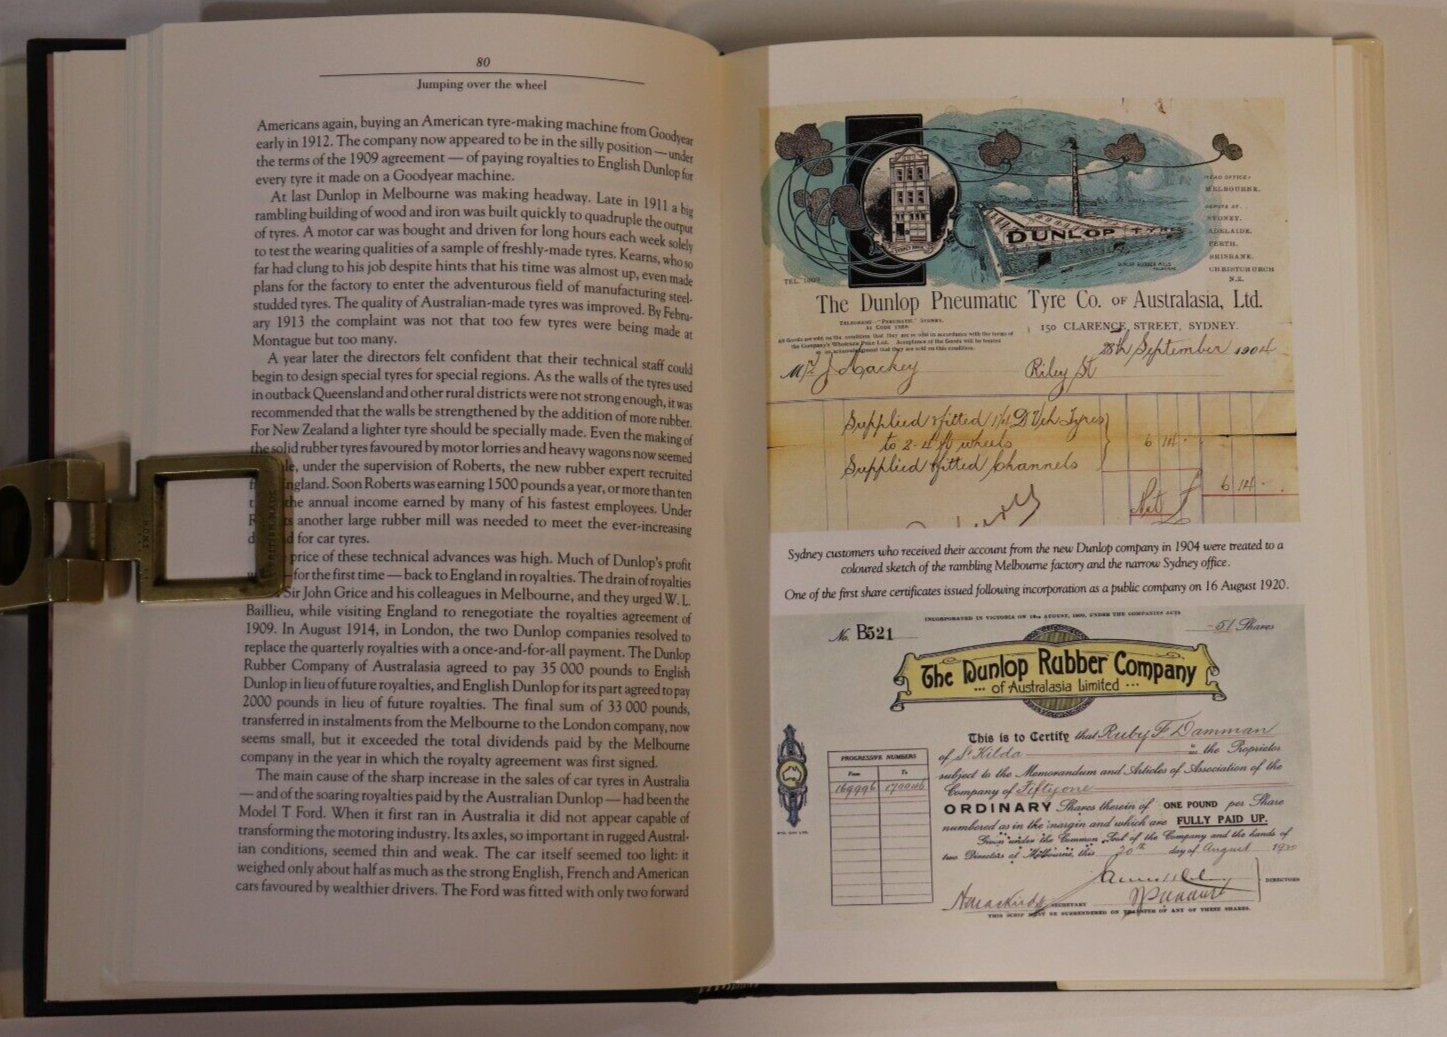 80
Jumping over the wheel
Americans again, buying an American tyre-making machine from Goodyear
early in 1912. The company now appeared to be in the silly position — under
the terms of the 1909 agreement — of paying royalties to English Dunlop for
every tyre it made on a Goodyear machine.
At last Dunlop in Melbourne was making headway. Late in 1911 a big
rambling building of wood and iron was built quickly to quadruple the output
of tyres. A motor car was bought and driven for long hours each week solely
to test the wearing qualities of a sample of freshly-made tyres. Kearns, who so
far had clung to his job despite hints that his time was almost up, even made
plans for the factory to enter the adventurous field of manufacturing steel-
studded tyres. The quality of Australian-made tyres was improved. By Febru-
ary 1913 the complaint was not that too few tyres were being made at
Montague but too many.
A year later the directors felt confident that their technical staff could
begin to design special tyres for special regions. As the walls of the tyres used
in outback Queensland and other rural districts were not strong enough, it was
recommended that the walls be strengthened by the addition of more rubber.
For New Zealand a lighter tyre should be specially made. Even the making of
the solid rubber tyres favoured by motor lorries and heavy wagons now seemed
under the supervision of Roberts, the new rubber expert recruited
England. Soon Roberts was earning 1500 pounds a year, or more than ten
the annual income earned by many of his fastest employees. Under
another large rubber mill was needed to meet the ever-increasing
for car tyres.
price of these technical advances was high. Much of Dunlop's profit
— for the first time — back to England in royalties. The drain of royalties
Sir John Grice and his colleagues in Melbourne, and they urged W. L.
Baillieu, while visiting England to renegotiate the royalties agreement of
1909. In August 1914, in London, the two Dunlop companies resolved to
replace the quarterly royalties with a once-and-for-all payment. The Dunlop
Rubber Company of Australasia agreed to pay 35 000 pounds to English
Dunlop in lieu of future royalties, and English Dunlop for its part agreed to pay
2000 pounds in lieu of future royalties. The final sum of 33 000 pounds,
transferred in instalments from the Melbourne to the London company, now
seems small, but it exceeded the total dividends paid by the Melbourne
company in the year in which the royalty agreement was first signed.
The main cause of the sharp increase in the sales of car tyres in Australia
— and of the soaring royalties paid by the Australian Dunlop — had been the
Model T Ford. When it first ran in Australia it did not appear capable of
transforming the motoring industry. Its axles, so important in rugged Austral-
ian conditions, seemed thin and weak. The car itself seemed too light: it
weighed only about half as much as the strong English, French and American
cars favoured by wealthier drivers. The Ford was fitted with only two forward
HEAD OFFICE:
MELBOURNE.
SYDNEY.
ADELAIDE.
PERTH.
BRISBANE.
CHRISTCHURCH
N.Z.
DUNLOP TYRE
TEL.
The Dunlop Pneumatic Tyre Co. OF Australasia, Ltd.
150 CLARENCE STREET, SYDNEY.
28th September 1904
J Mackey
Riley St
Supplied & fitted
to 2- wheels
6 14
Supplied & fitted Channels
6 14
Sydney customers who received their account from the new Dunlop company in 1904 were treated to a
coloured sketch of the rambling Melbourne factory and the narrow Sydney office.
One of the first share certificates issued following incorporation as a public company on 16 August 1920.
INCORPORATED IN VICTORIA ON 16th AUGUST, 1920, UNDER THE COMPANIES ACTS
No. B521
51 Shares
The Dunlop Rubber Company
of Australasia Limited
This is to Certify that Ruby F Damman
of St Kilda the Proprietor
subject to the Memorandum and Articles of Association of the
Company of Fiftyone
ORDINARY Shares therein of ONE POUND per Share
numbered as in the margin and which are FULLY PAID UP.
Given under the Common Seal of the Company and the hands of
two Directors at Melbourne, this 20th day of August 1920
PROGRESSIVE NUMBERS
From To
169996 170046
DIRECTORS
SECRETARY
THIS SCRIP MUST BE SURRENDERED ON TRANSFER OF ANY OF THESE SHARES.